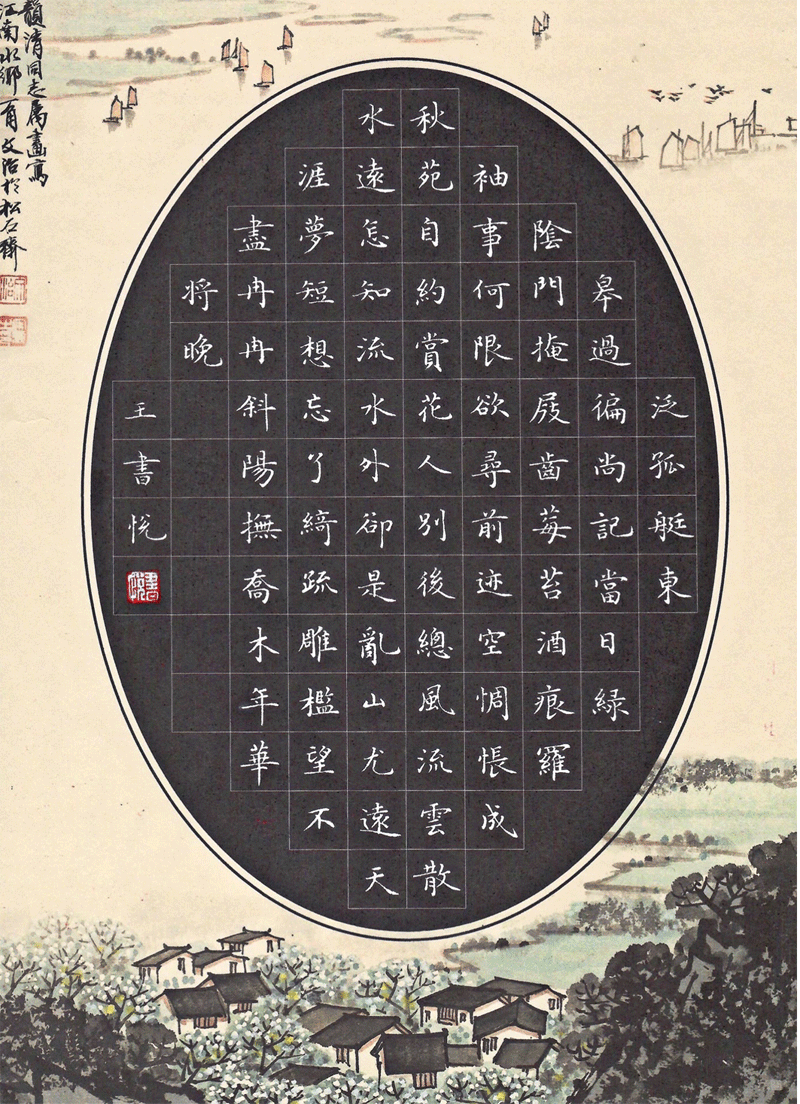 泛孤艇東
皋過徧尚記當日緑
陰門掩屐齒莓苔酒痕羅
袖事何限欲尋前迹空惆悵成
秋苑自約賞花人別後總風流雲散
水遠怎知流水外卻是亂山尤遠天
涯夢短想忘了綺疏雕檻望不
盡冉冉斜陽撫喬木年華
將晚
王書悅
書悅
韻清同志属畫寫
江南水鄉一角文治於松石齋